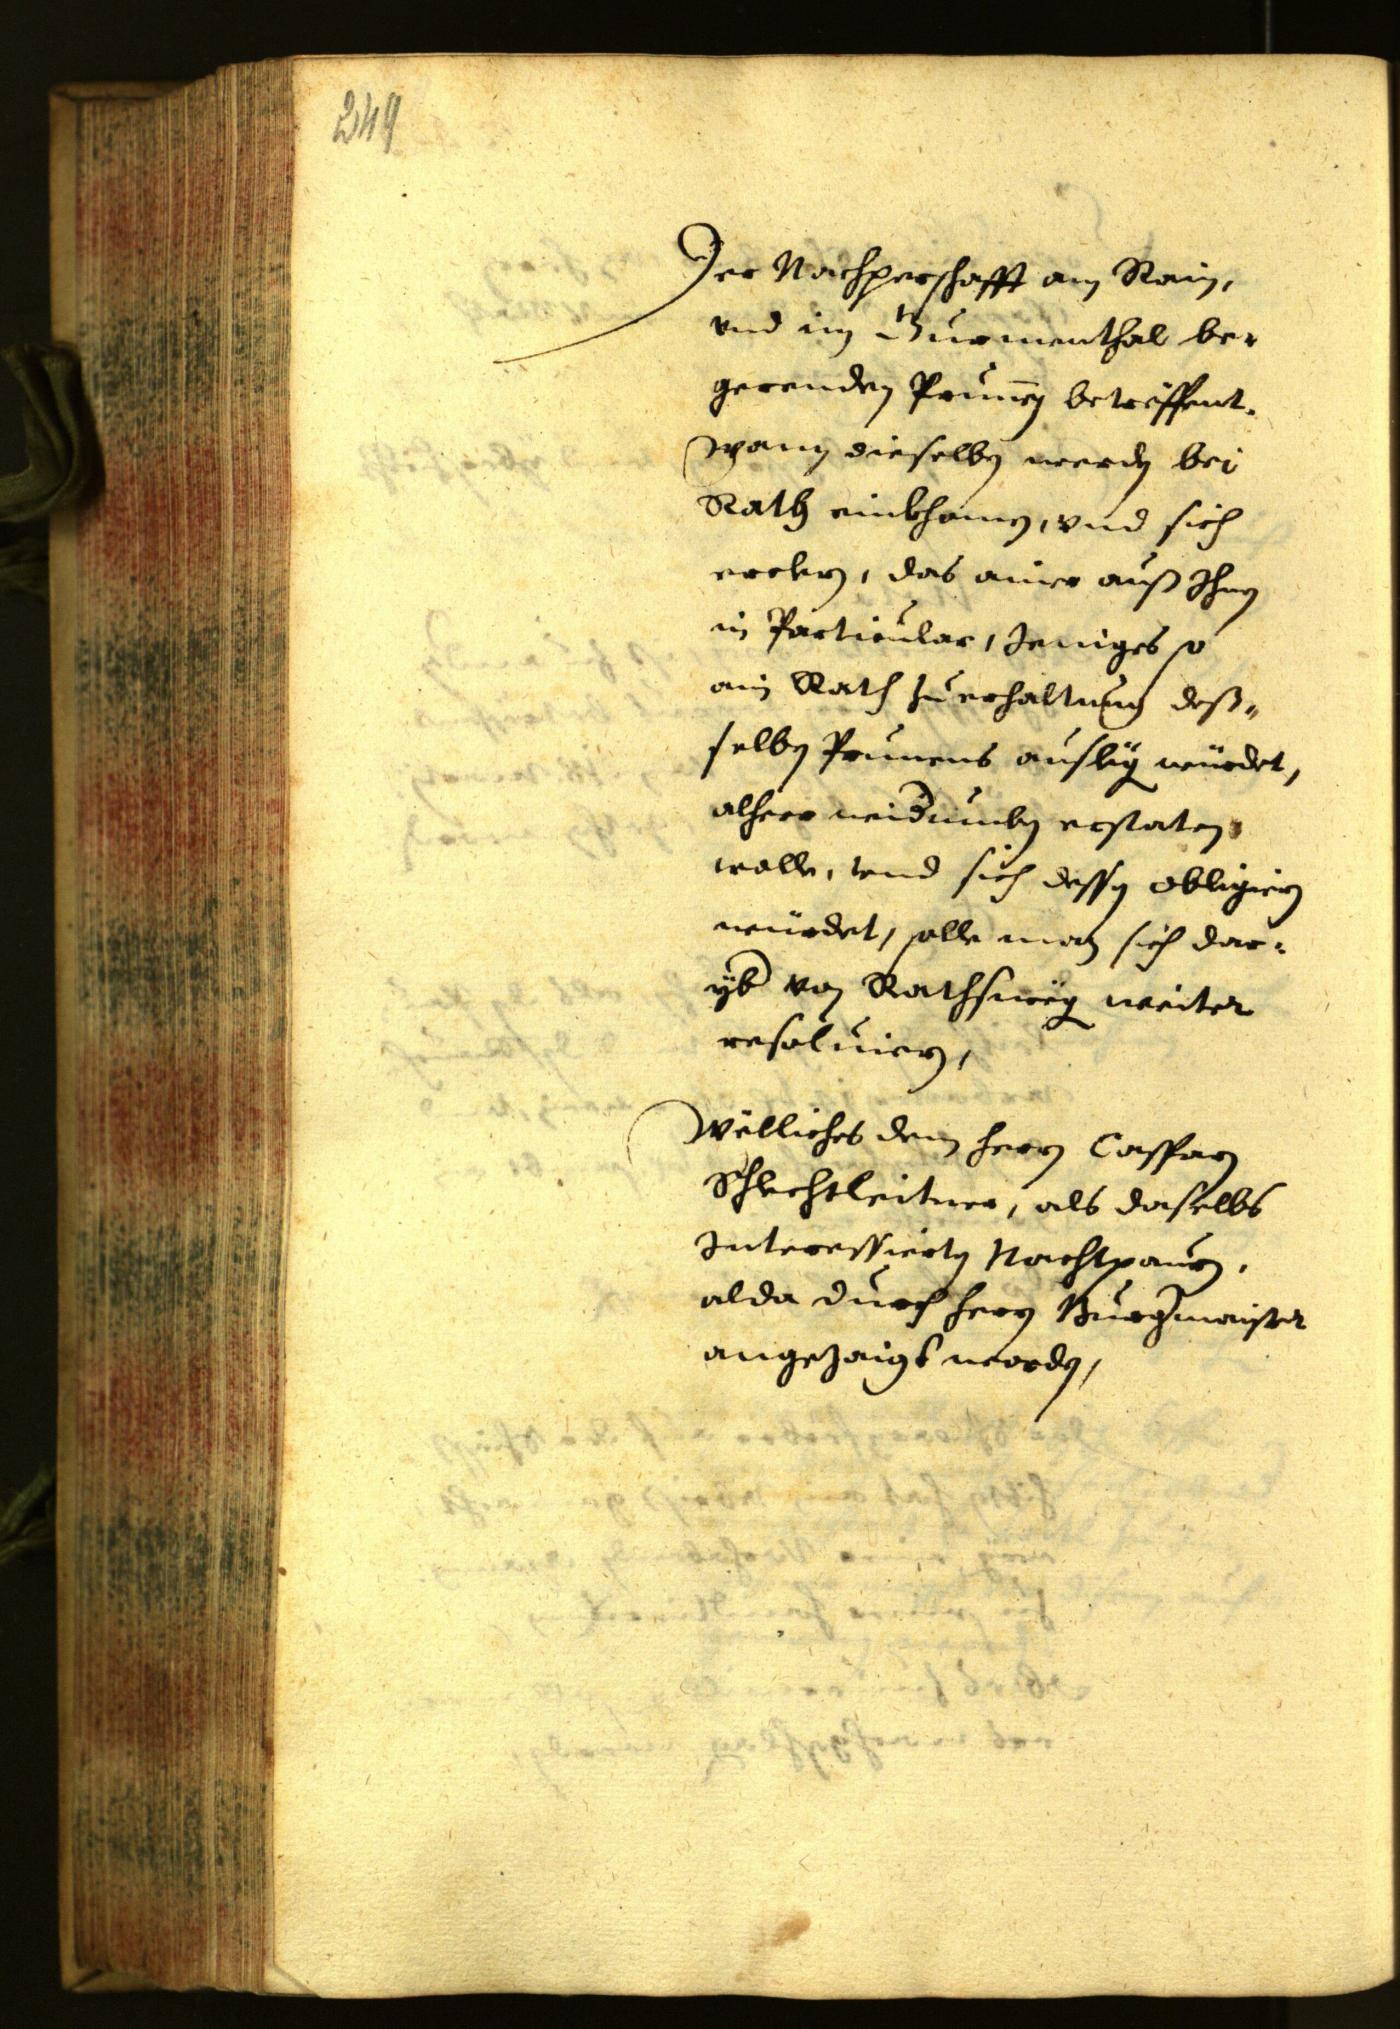 249
Der Nachperschafft am Rain,
vnd im Wurmenthal be-
gerenden Prunen betreffent.
Wann dieselben werden bei
Rath einkhomen, vnd sich
erclern, das ainer auß Ihnen
in Particular, Jeniges so
ain Rath zu erhaltung deß-
selben Prunens auslegen würdet,
alherr widerumben erstaten
wolle, vnd sich dessen obligiern
würdet, solle man sich dar-
yber von Rathswegen weiter
resoluiern,
Wölliches dem herrn Casparn
Schlechtleitner, als daselbs
Interessierten Nachtpaurn,
alda durch herrn Burgermaister
angezaigt worden,